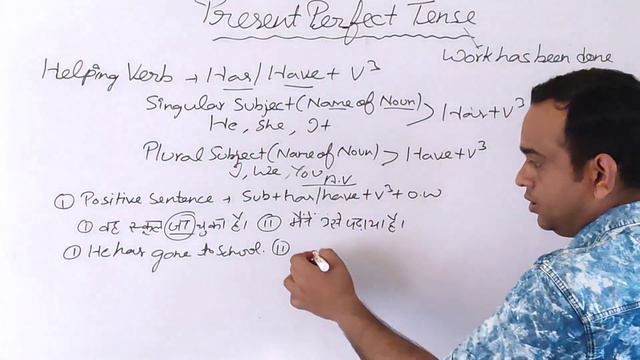 Present Perfect Tense
Work has been done
Helping Verb → Has/Have + V³
Singular Subject (Name of Noun) > Has + V³
He, She, It
Plural Subject (Name of Noun) > Have + V³
I, We, You
① Positive Sentence → Sub + has/have + V³ + O.W
① वह स्कूल जा चुका है। ⑪ मैंने उसे पढ़ाया है।
① He has gone to School. ⑪